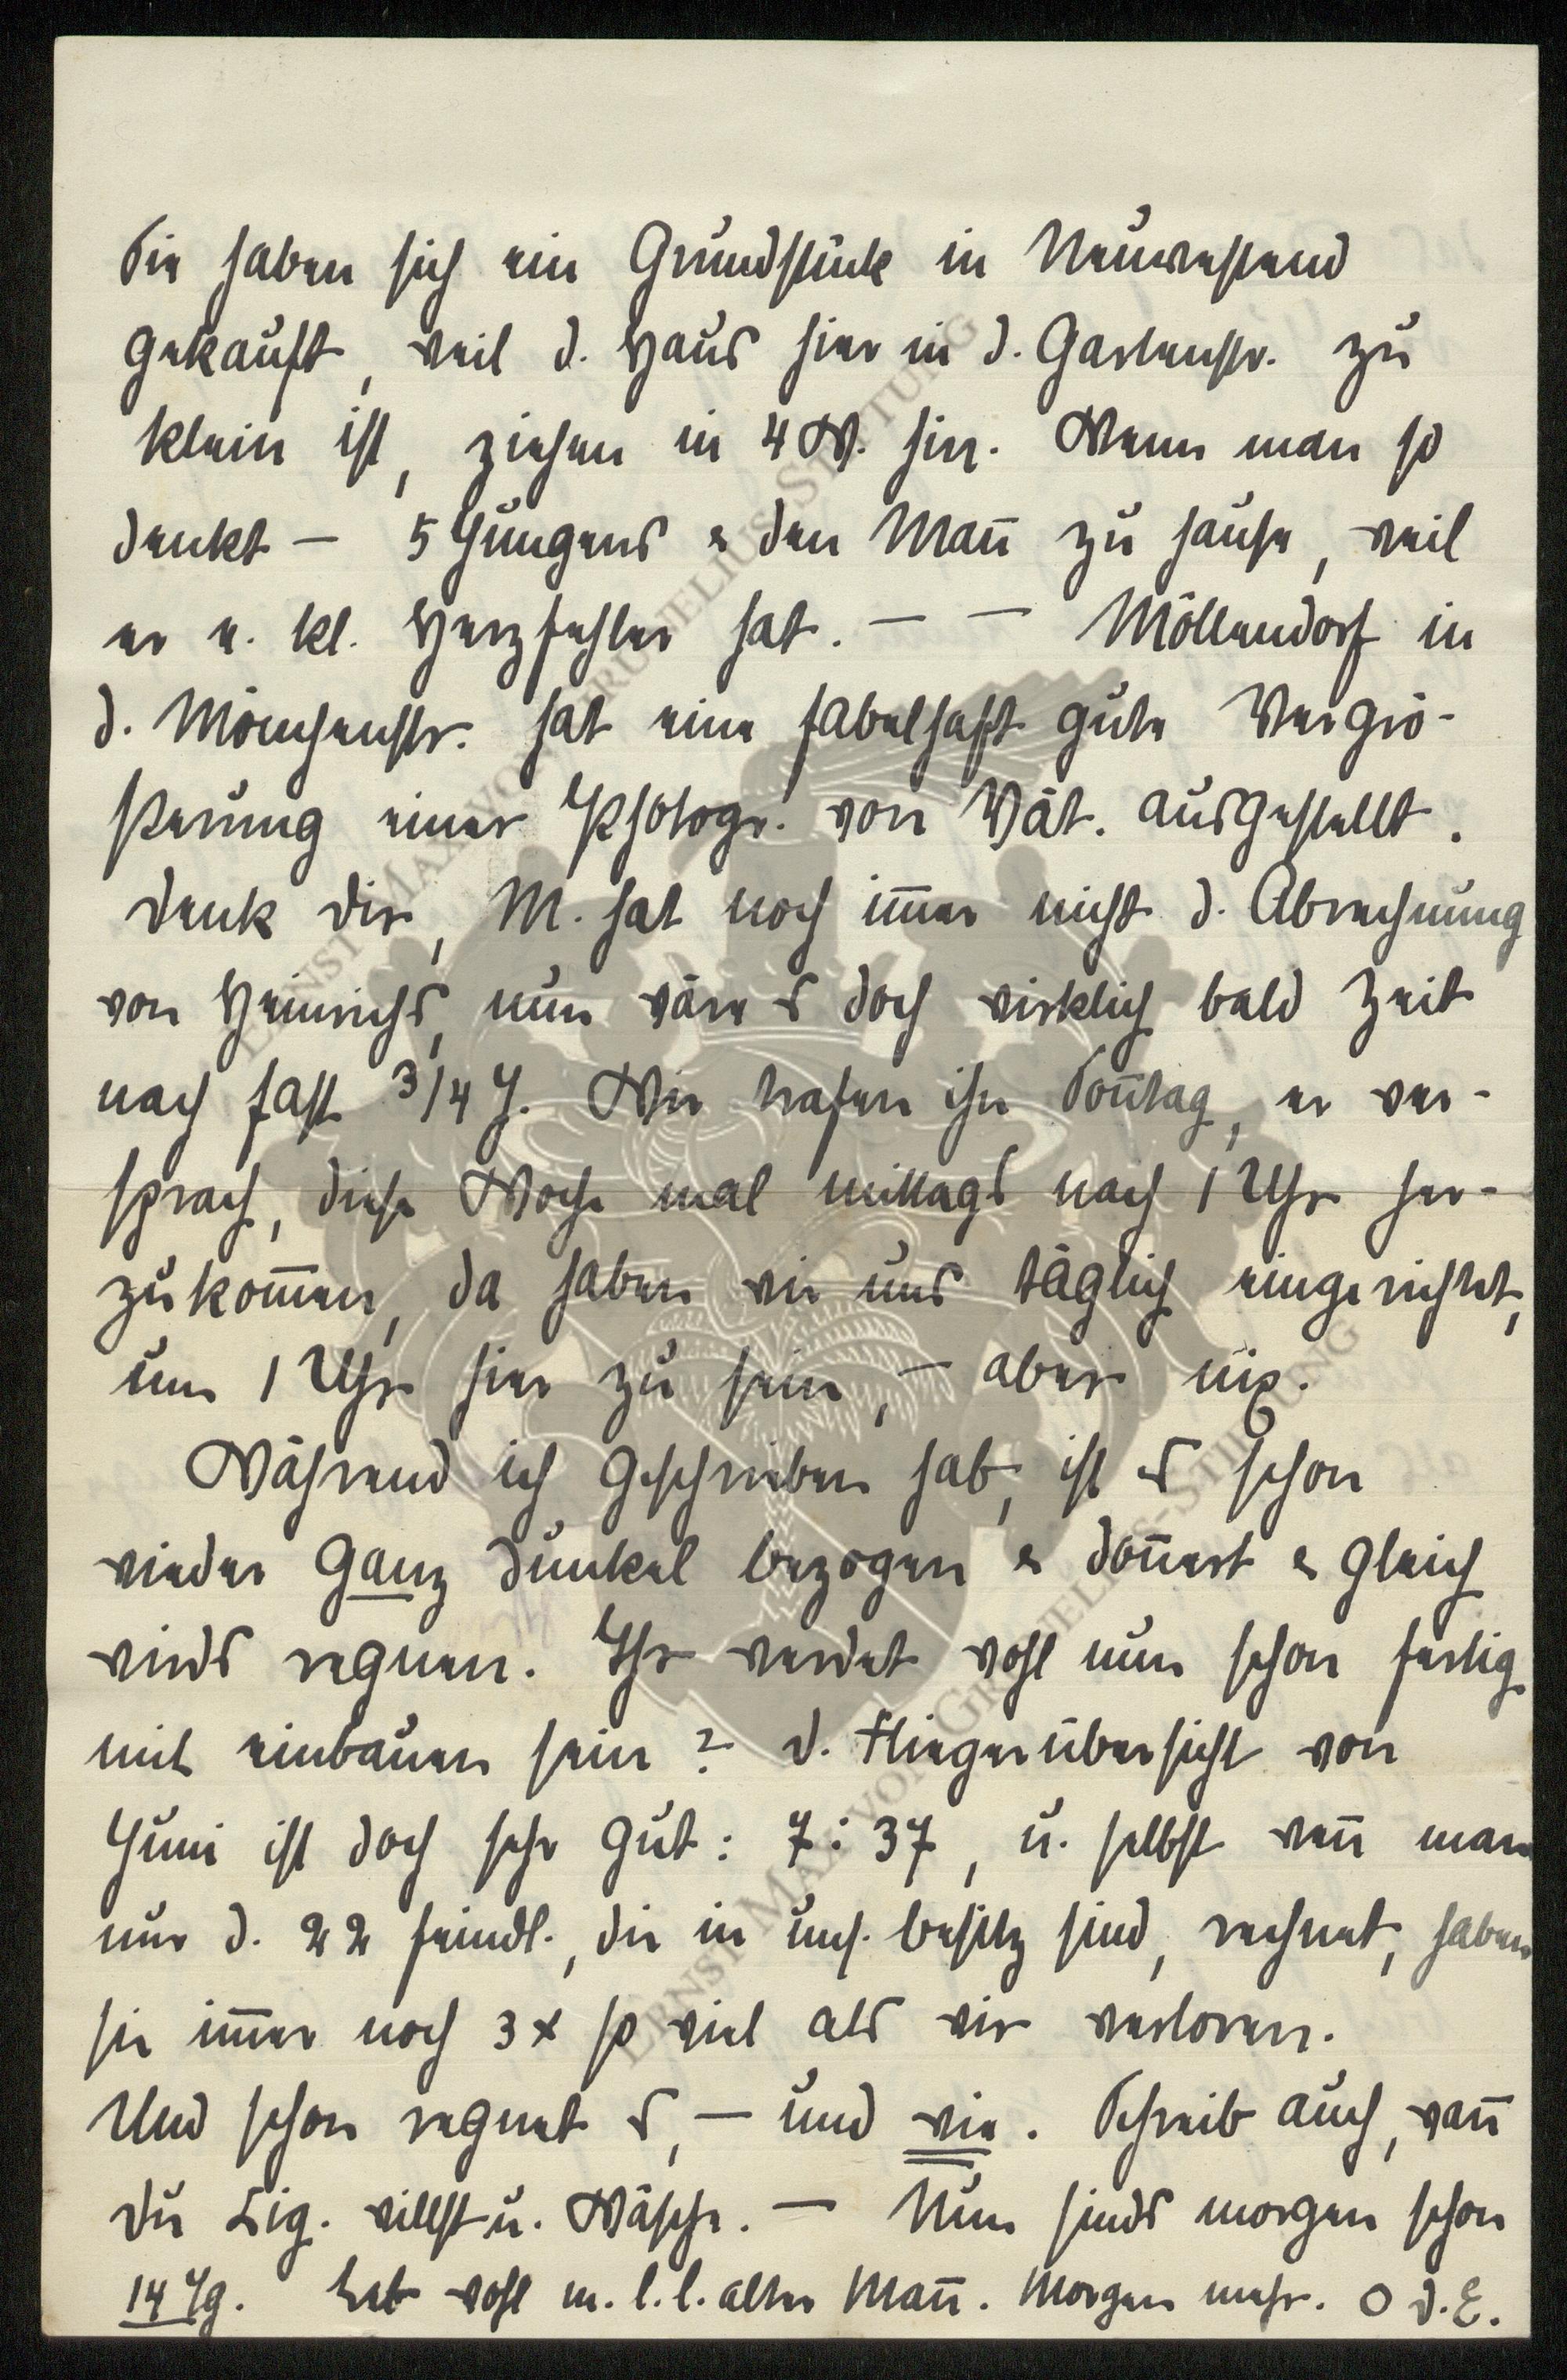 Sie haben sich ein Grundstück in Neuwestend
gekauft, weil d. Haus hier in d. Gartenstr. zu
klein ist, ziehen in 4 W. hin. Wenn man so
denkt — 5 Jungens & den Mañ zu hause, weil
er e. kl. Herzfehler hat. — — Möllendorf in
d. Mönchenstr. hat eine fabelhaft gute Vergrö-
sserung einer Photogr. von Vät. ausgestellt.
Denk dir, M. hat noch im̄er nicht d. Abrechnung
von Heinrichs, nun wäre es doch wirklich bald Zeit
nach fast 3/4 J. Wir trafen ihn Soñtag, er ver-
sprach, diese Woche mal mittags nach 1 Uhr her-
zukom̄en, da haben wir uns täglich eingerichtet,
um 1 Uhr hier zu sein, — aber nix.
Während ich geschrieben hab, ist es schon
wieder ganz dunkel bezogen & doñert & gleich
wirds regnen. Ihr werdet wohl nun schon fertig
mit einbauen sein? d. Fliegerübersicht von
Juni ist doch sehr gut: 7 : 37, u. selbst weñ man
nur d. 22 feindl., die in uns. besitz sind, rechnet, haben
sie im̄er noch 3 x so viel als wir verloren.
Und schon regnet es, — und wie. Schreib auch, wañ
du Zig. willst u. Wäsche. — Nun sinds morgen schon
14 Tg. Leb wohl m. l. l. alter Mañ. Morgen mehr. O d. E.
ERNST MAX VON GRUNELIUS-STIFTUNG
ERNST MAX VON GRUNELIUS-STIFTUNG